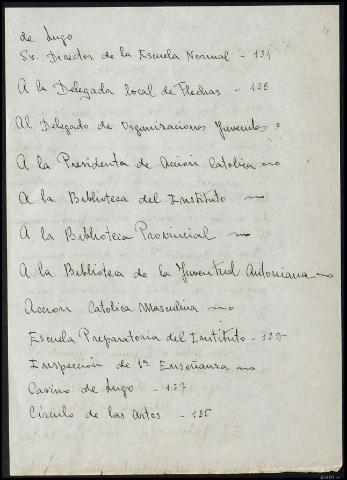 de Lugo
Sr. Director de la Escuela Normal - 134
A la Delegada local de Flechas - 135
Al Delegado de Organizaciones Juveniles
A la Presidenta de Acción Católica
A la Biblioteca del Instituto
A la Biblioteca Provincial
A la Biblioteca de la Juventud Antoniana
Acción Católica Masculina
Escuela Preparatoria del Instituto - 135
Inspección de 1ª Enseñanza
Casino de Lugo - 137
Círculo de las Artes - 136